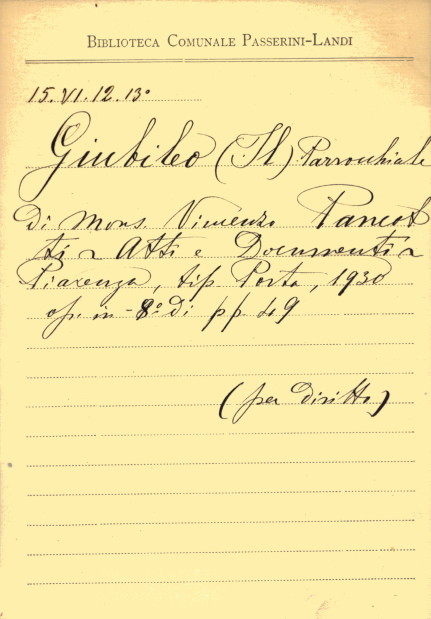 BIBLIOTECA COMUNALE PASSERINI-LANDI
15.VI.12.13°
Giubileo (Il) Parrocchiale
di Mons. Vincenzo Pancot
ti ~ Atti e Documenti ~
Piacenza, tip. Porta, 1930
op. in-8° di pp. 49
(per diritto)